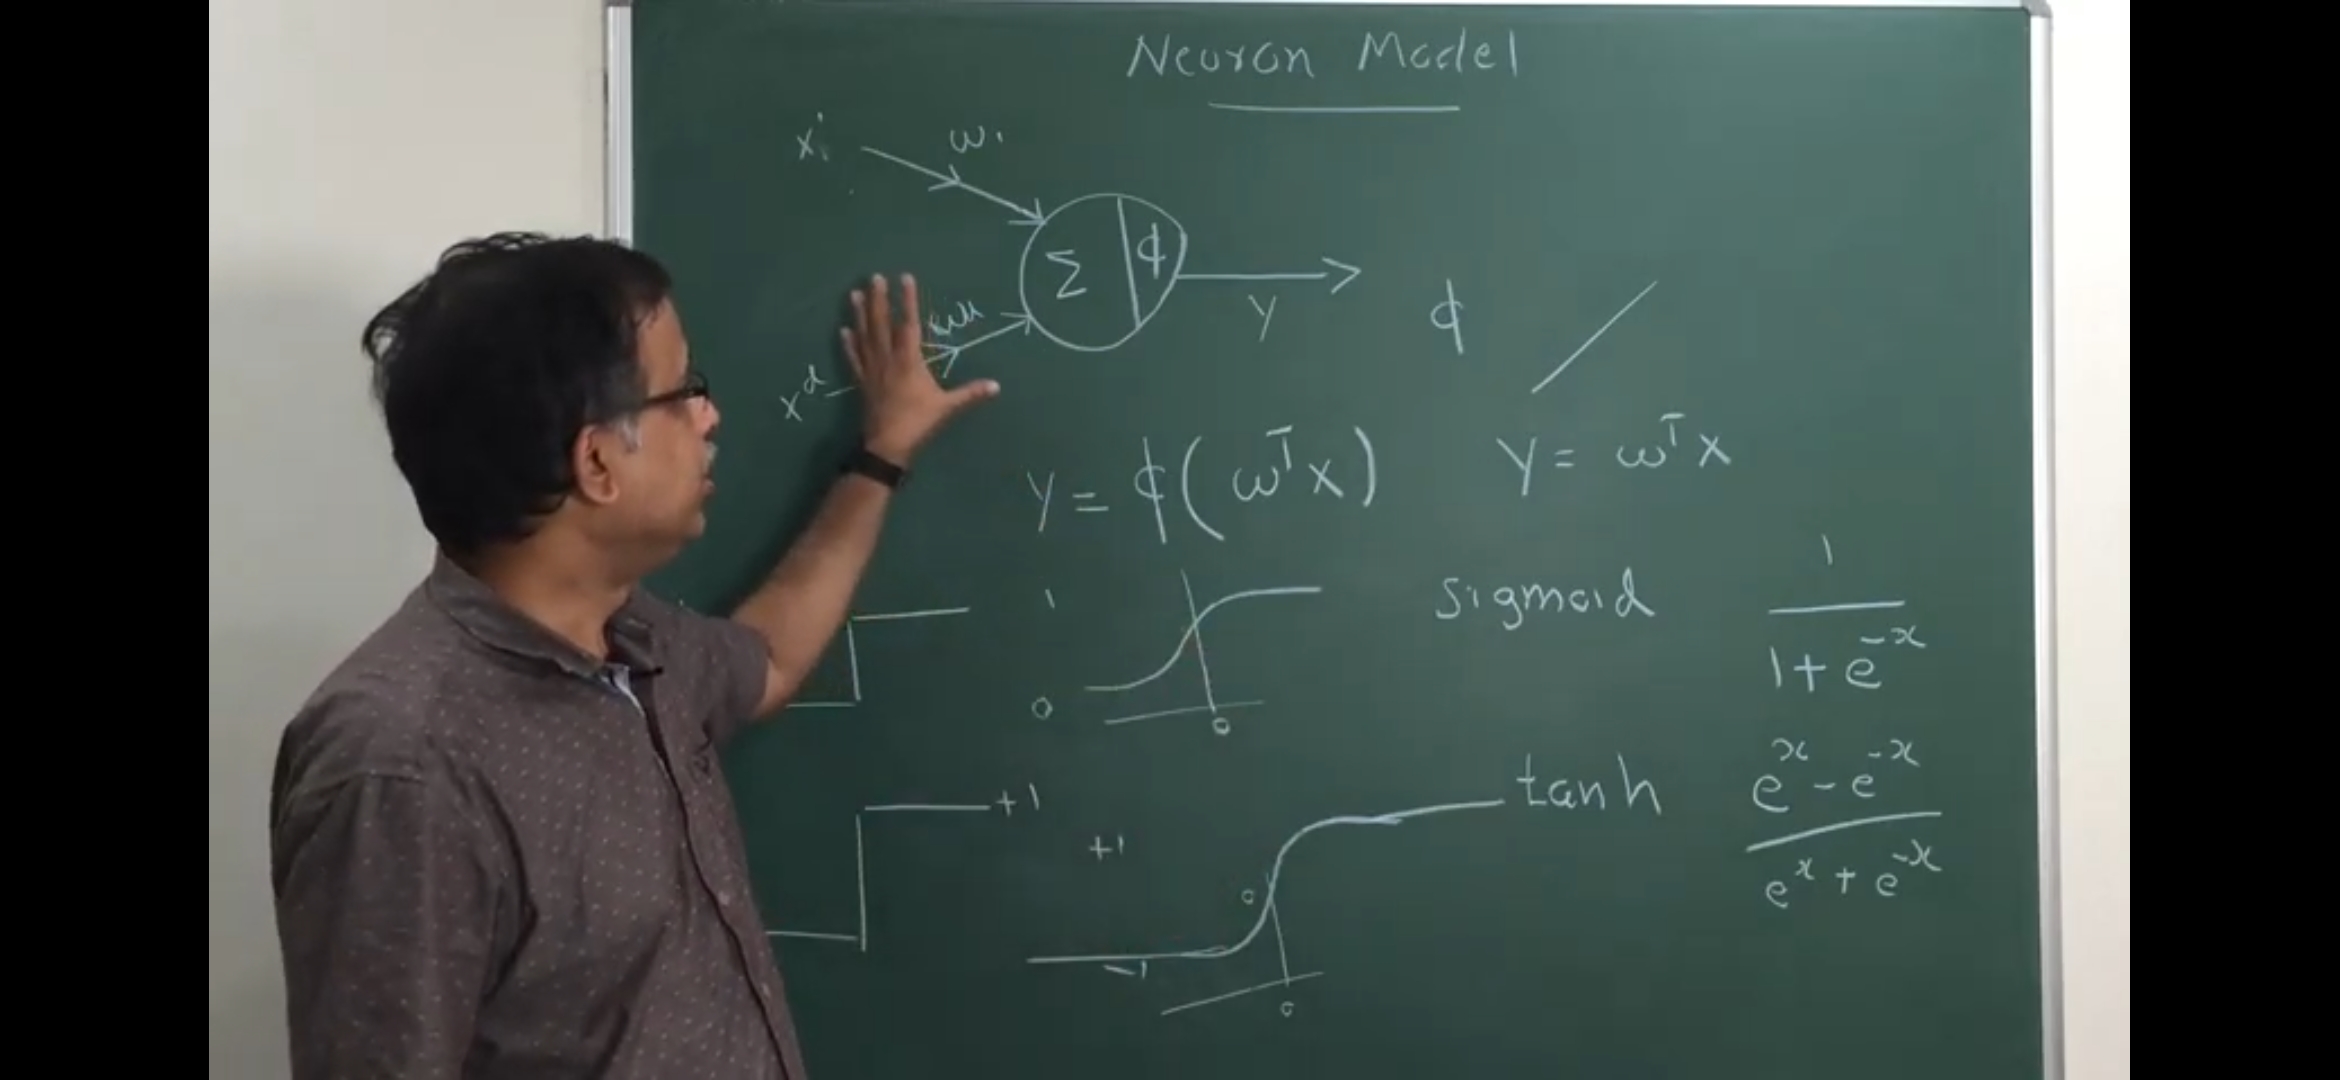 Neuron Model
x¹ w₁
Σ ϕ
x^d
Y
ϕ
Y = ϕ(ω^T x) Y = ω^T x
1 0 0 sigmoid 1 / (1 + e^-x)
+1
+1 -1 0 0 tanh (e^x - e^-x) / (e^x + e^-x)